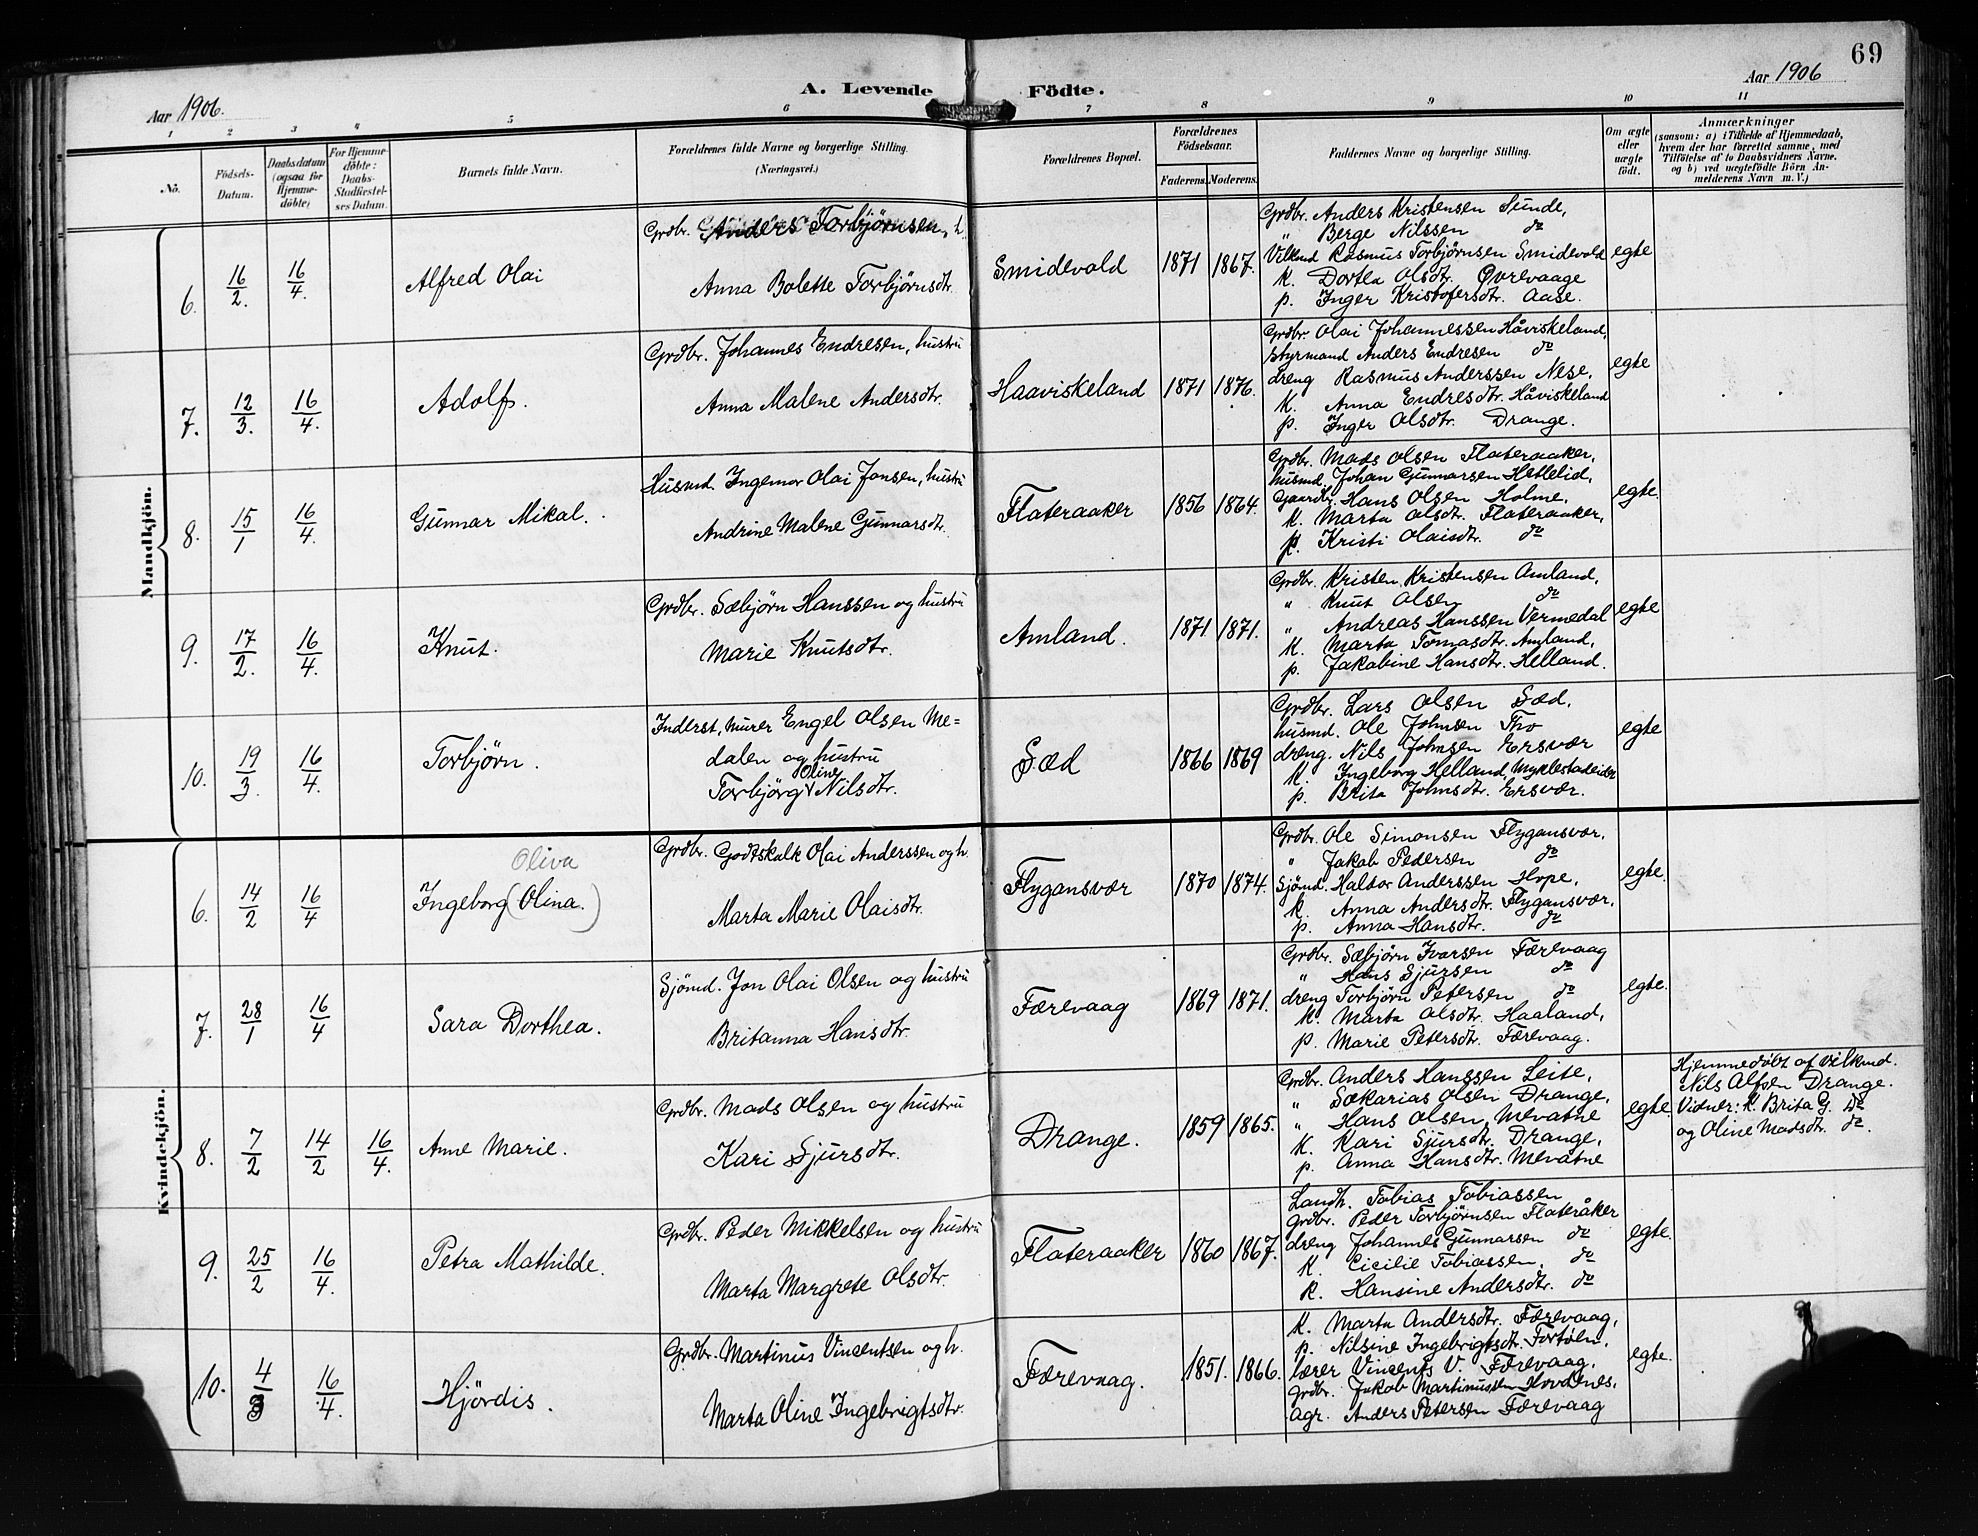 69
Aar 1906.
A. Levende Födte.
Aar 1906
1 2 3 4 5 6 7 8 9 10 11
No.
Födsels-
Datum.
Daabsdatum
(ogsaa for
Hjemme-
döbte)
For Hjemme-
döbte:
Daabs-
Stadfæstel-
ses Datum.
Barnets fulde Navn.
Forældrenes fulde Navne og borgerlige Stilling.
(Næringsvei.)
Forældrenes Bopæl.
Forældrenes
Födselsaar.
Faderens. Moderens.
Faddernes Navne og borgerlige Stilling.
Om ægte
eller
uægte
födt.
Anmærkninger
(saasom: a) i Tilfælde af Hjemmedaab,
hvem der har forrettet samme, med
Tilföielse af to Daabsvidners Navne,
og b) ved uægtefödte Börn An-
melderens Navn m. V.)
Mandkjön.
6. 16/2. 16/4. Alfred Olai
Grdbr. Anders Torbjørnsen, h.
Anna Bolette Torbjørnsdtr.
Smidevold 1871 1867.
Grdbr. Anders Kristensen Sunde,
" Berge Nilssen do
Vilkmd Rasmus Torbjørnsen Smidevold
K. Dortea Olsdtr. Øvrevaage
p. Inger Kristofersdtr. Aase.
egte
7. 12/3. 16/4. Adolf.
Grdbr. Johannes Endresen, hustru
Anna Malene Andersdtr.
Haaviskeland 1871 1876.
Grdbr. Olai Johannessen Håviskeland,
Styrmand Anders Endresen do
dreng Rasmus Anderssen Nese,
K. Anna Endresdtr. Håviskeland
p. Inger Olsdtr. Drange.
egte
8. 15/1 16/4. Gunnar Mikal.
Husmd. Ingemor Olai Jonsen, hustru
Andrine Malene Gunnarsdtr.
Flateraaker 1856 1864.
Grdbr. Mads Olsen Flateraaker,
husmd. Johan Gunnarsen Hettelid,
Gaardbr. Hans Olsen Holme,
K. Marta Olsdtr. Flateraaker,
p. Kristi Olaisdtr. do
egte.
9. 17/2. 16/4. Knut.
Grdbr. Sæbjørn Hanssen og hustru
Marie Knutsdtr.
Amland. 1871 1871.
Grdbr. Kristen Kristensen Amland,
" Knut Olsen do
" Andreas Hanssen Vermedal
K. Marta Tomasdtr. Amland,
p. Jakobine Hansdtr. Helland.
egte
10. 19/3. 16/4. Torbjørn.
Inderst, murer Engel Olsen Me=
dalen og hustru
Oline
Torbjørg Nilsdtr.
Sæd 1866 1869
Grdbr. Lars Olsen Sæd,
husmd. Ole Johnsen Tho
dreng. Nils Johnsen Ersvær
K. Ingeborg Helland, Myklestadeidet
p. Brita Johnsdtr. Ersvær.
egte
Kvindekjön.
6. 14/2 16/4 Oliva
Ingeborg (Olina.)
Grdbr. Godtskalk Olai Anderssen og h.
Marta Marie Olaisdtr.
Flygansvær 1870 1874.
Grdbr. Ole Simonsen Flygansvær,
" Jakob Pedersen do
Sjömd. Haldor Anderssen Hope,
K. Anna Andersdtr. Flygansvær,
p. Anna Hansdtr. do
egte.
7. 28/1 16/4 Sara Dorthea.
Sjömd. Jon Olai Olsen og hustru
Britanna Hansdtr.
Færevaag 1869 1871.
Grdbr. Sæbjørn Ivarsen Færevaag
" Hans Sjursen do
dreng Torbjørn Petersen do
K. Marta Olsdtr. Haaland,
p. Marie Petersdtr. Færevaag.
egte.
8. 7/2 14/2 16/4. Anne Marie.
Grdbr. Mads Olsen og hustru
Kari Sjursdtr.
Drange. 1859 1865.
Grdbr. Anders Hanssen Leite,
" Sakarias Olsen Drange,
" Hans Olsen Mevatne
K. Kari Sjursdtr. Drange,
p. Anna Hansdtr. Mevatne
egte.
Hjemmedöbt af vilkmd.
Nils Alfsen Drange.
Vidner: K. Brita G. do
og Oline Madsdtr. do.
9. 25/2 16/4. Petra Mathilde.
Grdbr. Peder Mikkelsen og hustru
Marta Margrete Olsdtr.
Flateraaker 1860 1867.
Landh. Tobias Tobiassen
grdbr. Peder Torbjørnsen Flateråker
dreng Johannes Gunnarsen do
K. Cicilie Tobiassen, do
K. Hansine Andersdtr. do
egte.
10. 4/3 16/4. Hjördis.
Grdbr. Martinus Vincentsen og h.
Marta Oline Ingebrigtsdtr.
Færevaag. 1851. 1866.
K. Marta Andersdtr. Færevaag,
p. Nilsine Ingebrigtsdtr. Tortøen,
lærer Vincents V. Færevaag,
grdbr. Jakob Martinussen Hovdenes,
agr. Anders Petersen Færevaag
egte.